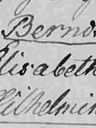 Bernd
Elisabeth
Wilhelmin